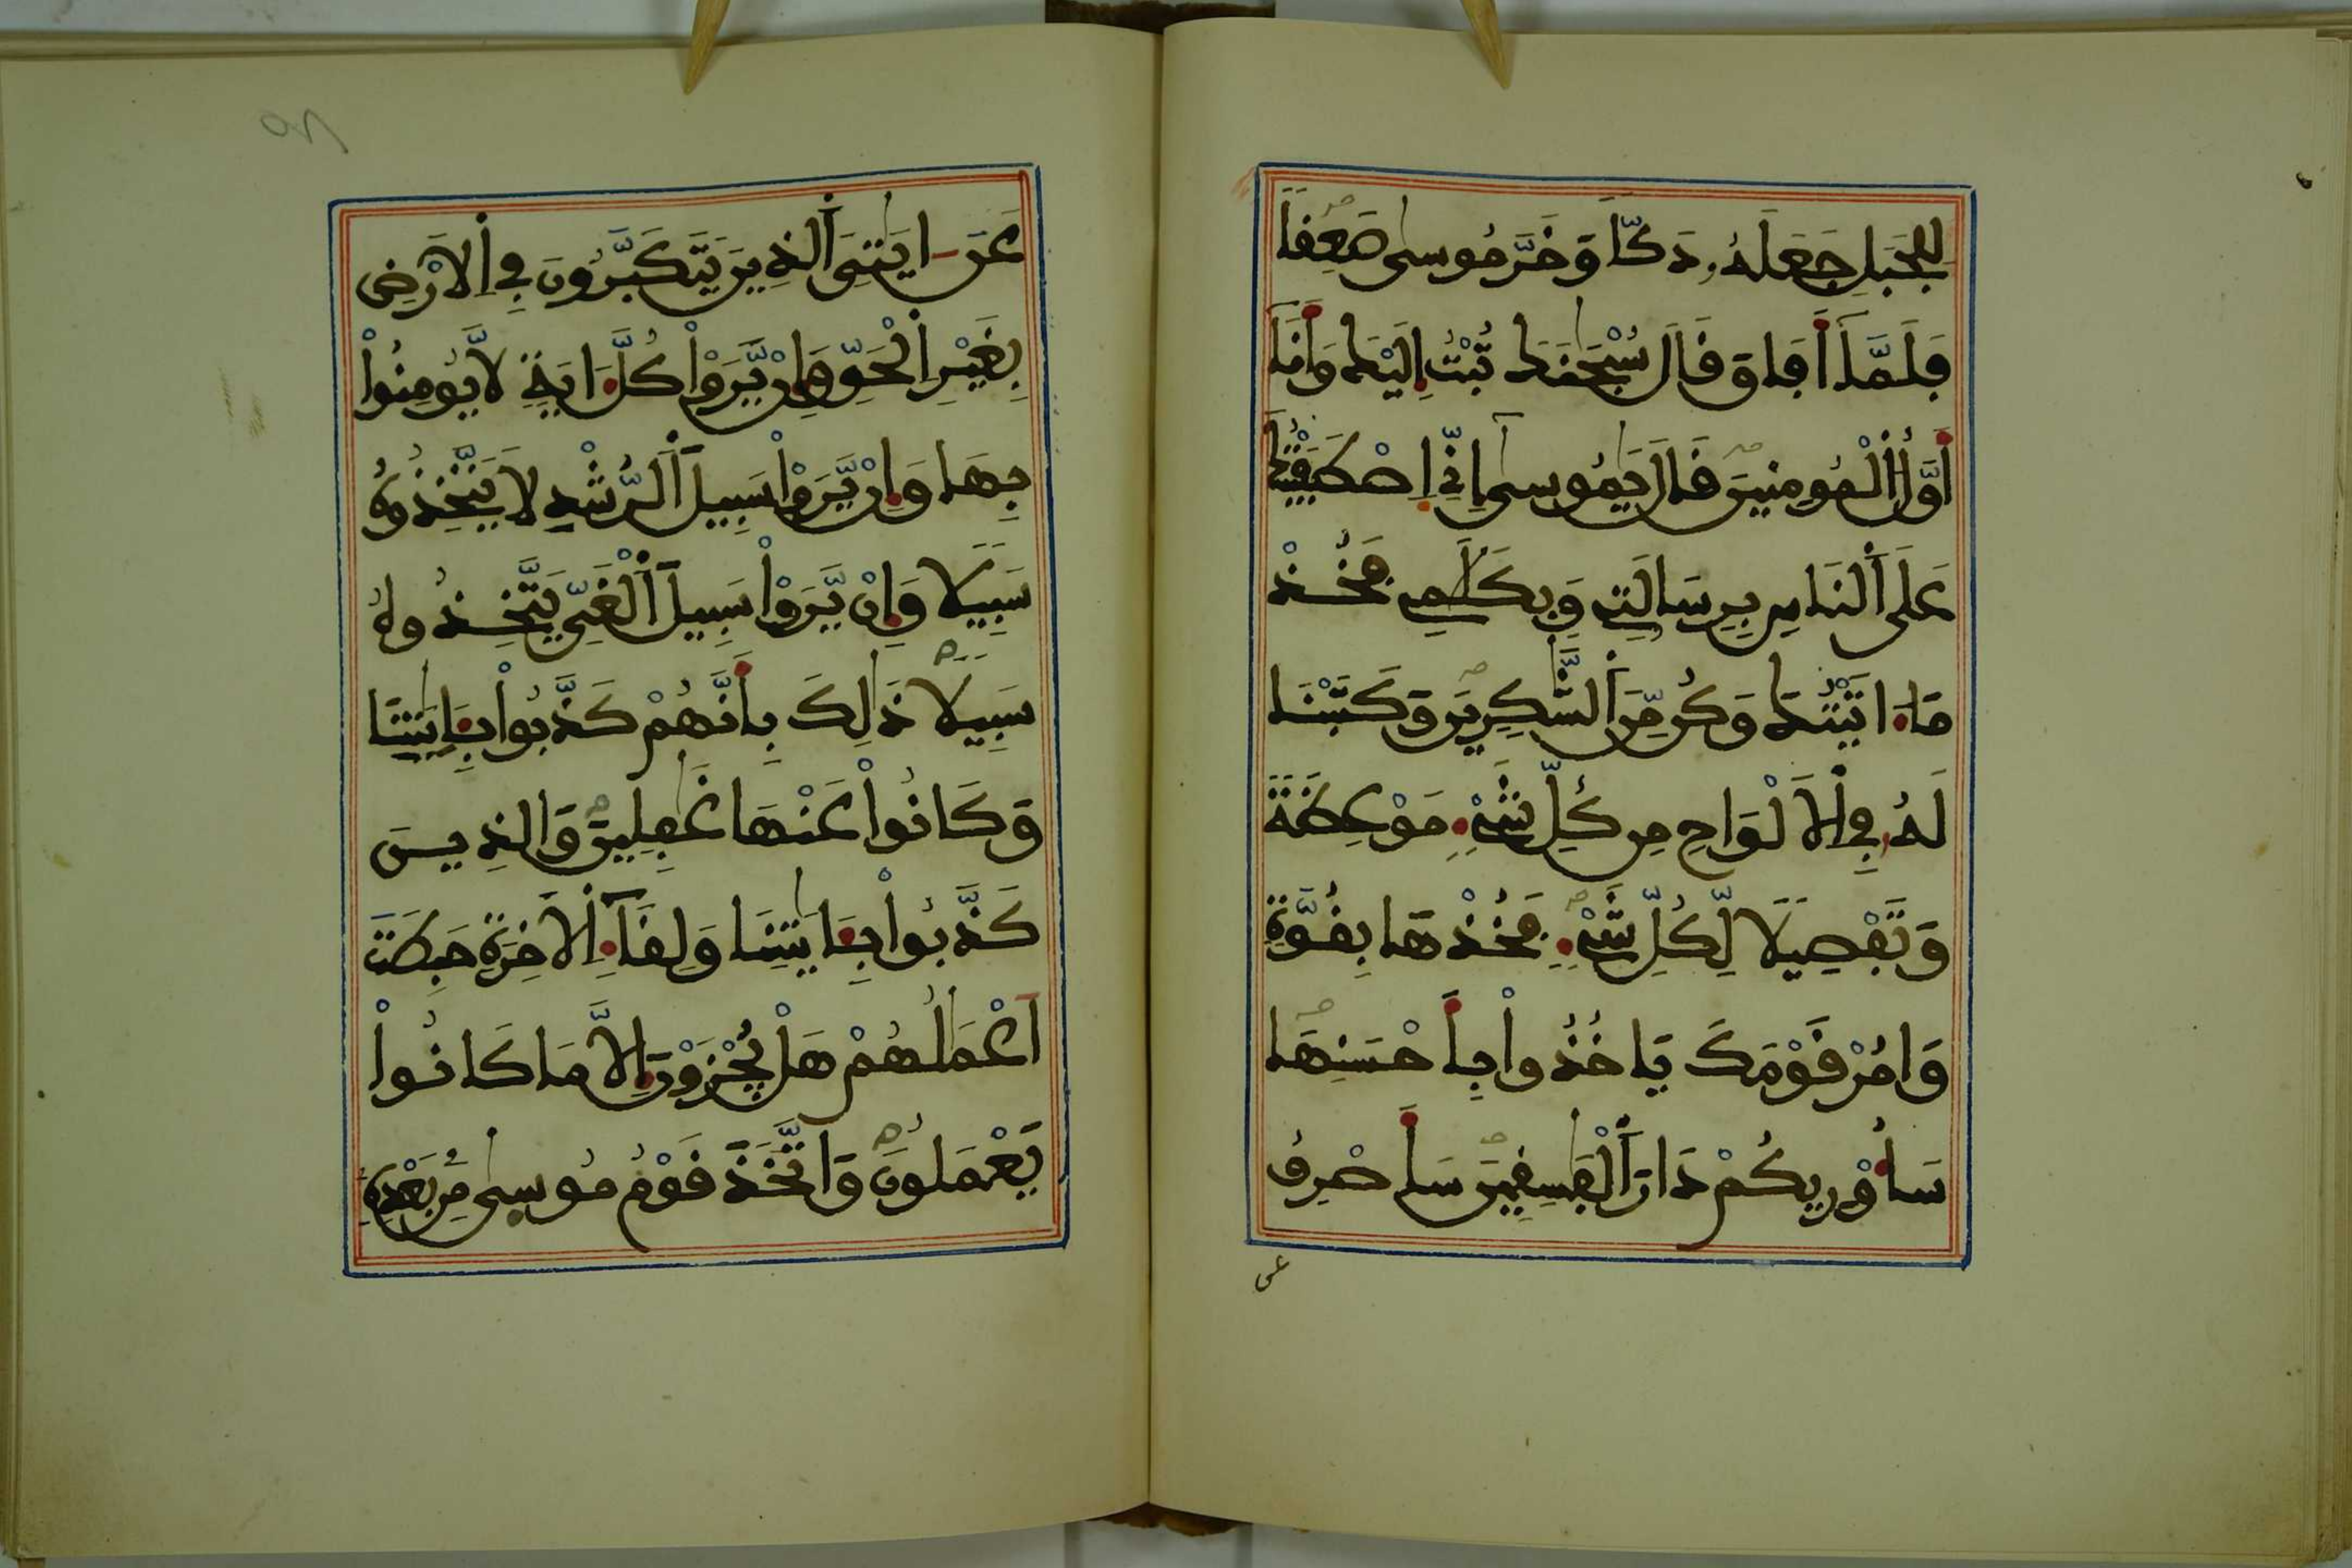 لِلْجَبَلِ جَعَلَهُ دَكّاً وَخَرَّ مُوسىٰ صَعِفاً
فَلَمَّآ أَفَاقَ قَالَ سُبْحَٰنَكَ تُبْتُ إِلَيْكَ وَأَنَا
أَوَّلُ اُ۬لْمُومِنِينَ قَالَ يَٰمُوسىٰٓ إِنِّے اِ۪صْطَفَيْتُكَ
عَلَى اَ۬لنَّاسِ بِرِسَالَتِے وَبِكَلَٰمِے فَخُذْ
مَآ ءَاتَيْتُكَ وَكُن مِّنَ اَ۬لشَّٰكِرِينَ وَكَتَبْنَا
لَهُ فِے اِ۬لَالْوَاحِ مِن كُلِّ شَےْءٍ مَوْعِظَةً
وَتَفْصِيلاً لِّكُلِّ شَےْءٍ فَخُذْهَا بِقُوَّةٍ
وَامُرْ قَوْمَكَ يَاخُذُواْ بِأَحْسَنِهَا
سَأُوْرِيكُمْ دَارَ اَ۬لْفَٰسِقِينَ سَأَصْرِفُ
عن
عَنَ ايَٰتِيَ اَ۬لذِينَ يَتَكَبَّرُونَ فِے اِ۬لَارْضِ
بِغَيْرِ اِ۬لْحَقِّ وَإِنْ يَّرَوْاْ كُلَّ ءَايَةٍ لَّا يُومِنُواْ
بِهَا وَإِنْ يَّرَوْاْ سَبِيلَ اَ۬لرُّشْدِ لَا يَتَّخِذُوهُ
سَبِيلاً وَإِنْ يَّرَوْاْ سَبِيلَ اَ۬لْغَيِّ يَتَّخِذُوهُ
سَبِيلاً ذَٰلِكَ بِأَنَّهُمْ كَذَّبُواْ بِـَٔايَٰتِنَا
وَكَانُواْ عَنْهَا غَٰفِلِينَ وَالذِينَ
كَذَّبُواْ بِـَٔايَٰتِنَا وَلِقَآءِ اِ۬لَاخِرَةِ حَبِطَتَ
اَعْمَٰلُهُمْ هَلْ يُجْزَوْنَ إِلَّا مَا كَانُواْ
يَعْمَلُونَ وَاتَّخَذَ قَوْمُ مُوسىٰ مِنۢ بَعْدِهِ